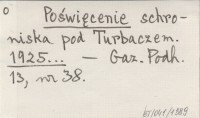 o
Poświęcenie schro-
niska pod Turbaczem.
1925... — Gaz. Podh.
13, nr 38.